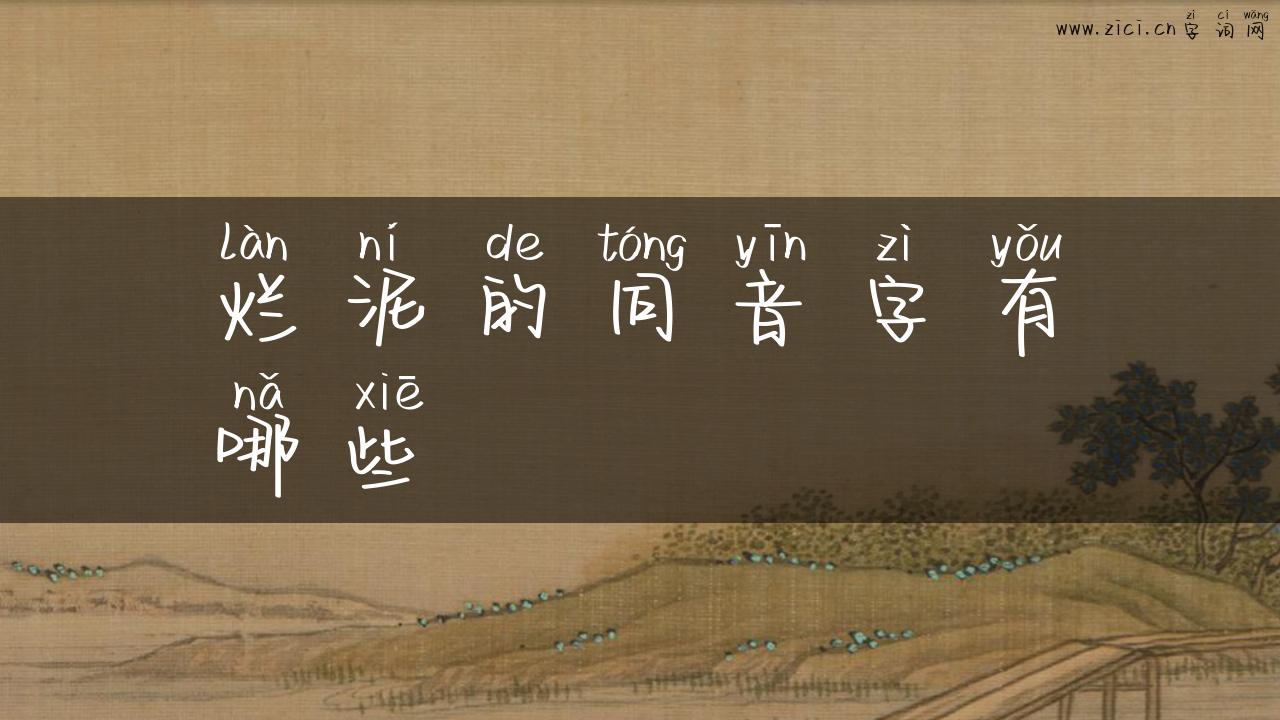 zì cí wǎng
www.zici.cn字词网
làn ní de tóng yīn zì yǒu
烂泥的同音字有
nǎ xiē
哪些